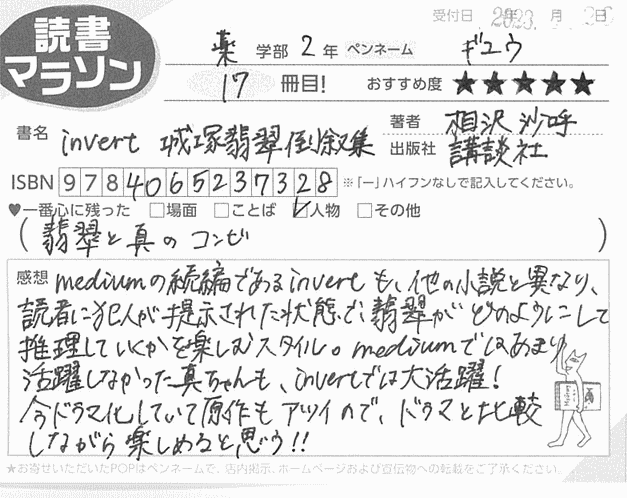 受付日 2023年 月 日
読書
マラソン
薬 学部 2 年 ペンネーム ギユウ
17 冊目! おすすめ度 ★★★★★
書名 invert 城塚翡翠倒叙集
著者 相沢 沙呼
出版社 講談社
ISBN 9784065237328 ※「ー」ハイフンなしで記入してください。
♥一番心に残った □場面 □ことば ☑人物 □その他
(翡翠と真のコンビ)
感想 mediumの続編であるinvertも、他の小説と異なり、
読者に犯人が提示された状態で、翡翠がどのようにして
推理していくかを楽しむスタイル。mediumではあまり
活躍しなかった真ちゃんも、invertでは大活躍!
今ドラマ化していて原作もアツイので、ドラマと比較
しながら楽しめると思う!!
★お寄せいただいたPOPはペンネームで、店内掲示、ホームページおよび宣伝物への転載をご了承ください。